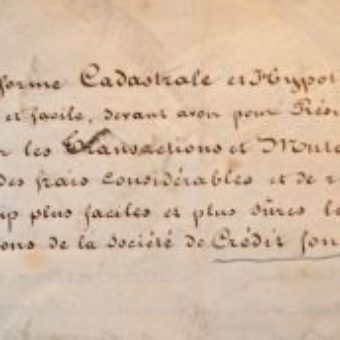 forme Cadastrale et Hypot
et facile, devant avoir pour Rés
r les Transactions et Mute
des frais considérables et de r
up plus faciles et plus sûres le
ons de la Société de Crédit fon